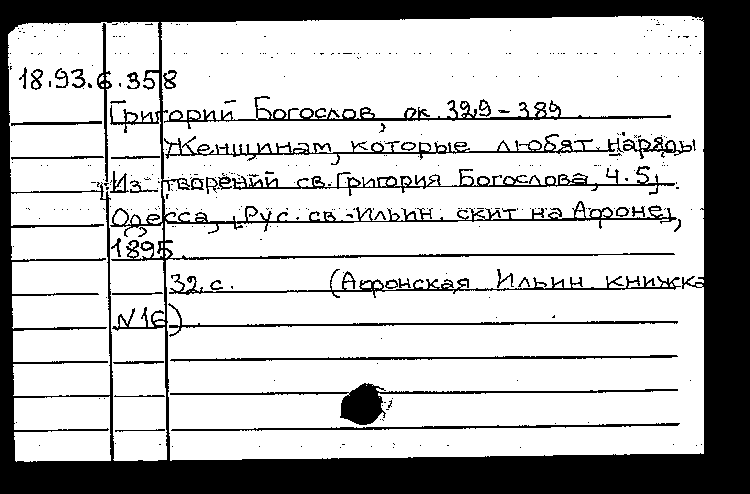 18.93.6.358
Григорий Богослов, ок. 329-389.
Женщинам, которые любят наряды.
[Из творений св. Григория Богослова, ч. 5].
Одесса, [Рус. св.-Ильин. скит на Афоне],
1895.
32 с. (Афонская Ильин. книжка
№16)